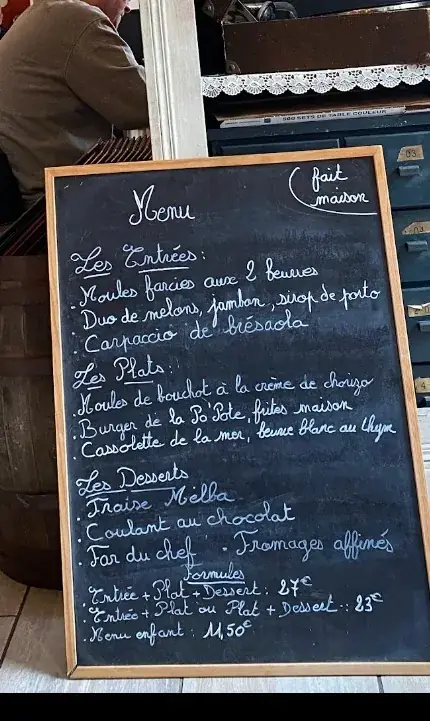 500 SETS DE TABLE COULEUR
Menu
fait
maison
Les Entrées :
. Moules farcies aux 2 beurres
. Duo de melons, jambon, sirop de porto
. Carpaccio de brésaola
Les Plats :
. Moules de bouchot à la crème de chorizo
. Burger de la Po'Pote, frites maison
. Cassolette de la mer, beurre blanc au thym
Les Desserts
. Fraise Melba
. Coulant au chocolat
. Far du chef . Fromages affinés
Formules
. Entrée + Plat + Dessert : 27€
. Entrée + Plat ou Plat + Dessert : 23€
. Menu enfant : 11,50€